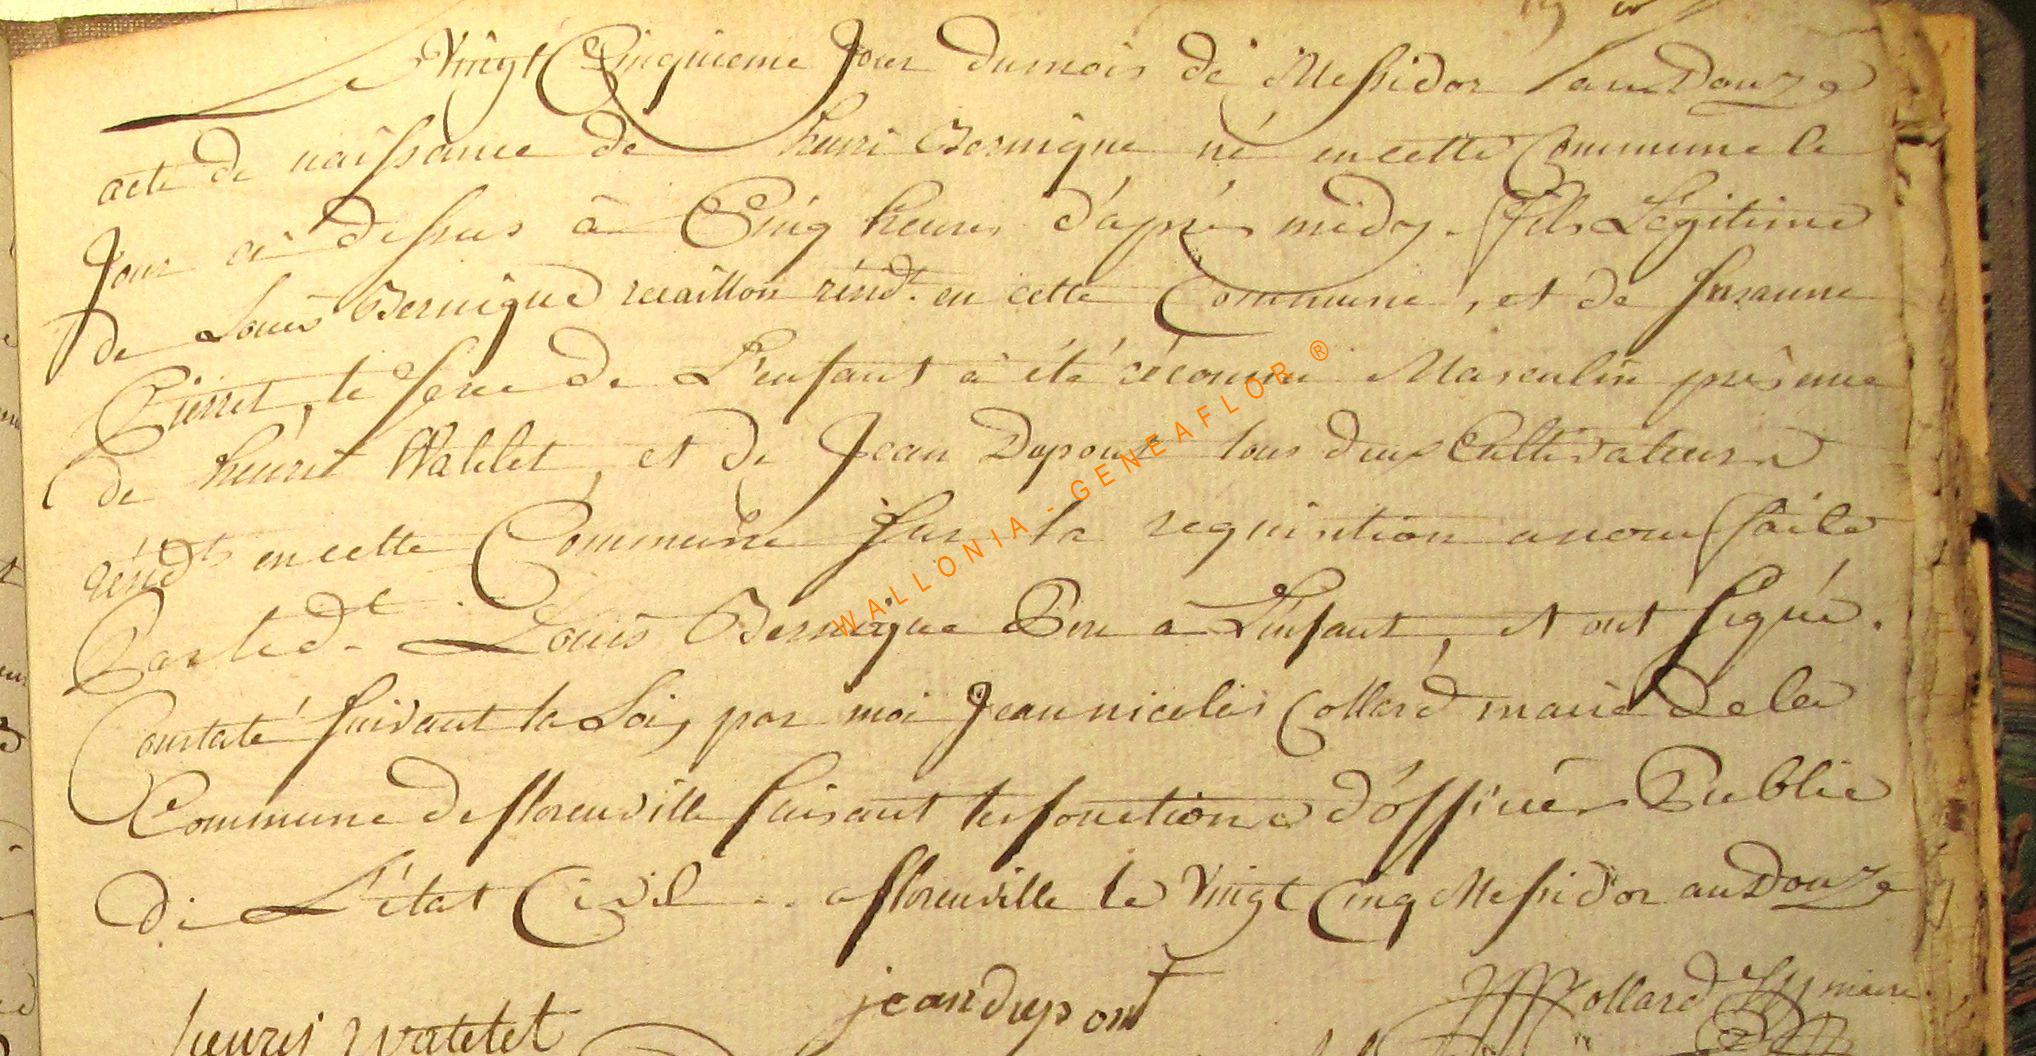 Le Vingt Cinquieme Jour du mois de Messidor l'an Douze
acte de naissance de henri Bernique né en cette Commune le
Jour ci dessus à Cinq heures d'après midy. fils Légitime
de Louis Bernique recaillon résidt. en cette Commune, et de Suzanne
Pierret, le sexe de L'enfant à été réconnu Masculin présence
de henri Watelet, et de Jean Dupont tous deux Cultivateurs
résidts en cette Commune Sur la requisition a nous faite
Par led.t Louis Bernique Pere a L'enfant, et ont signé.
Constaté suivant la Loi, par moi Jean nicolas Collard maire de la
Commune de florenville faisant les fonctions d'officier Public
de L'état Civil .. a florenville le Vingt Cinq Messidor an Douze
jean dupont
Collard maire
henrij watelet
WALLONIA - GENEAFLOR ®